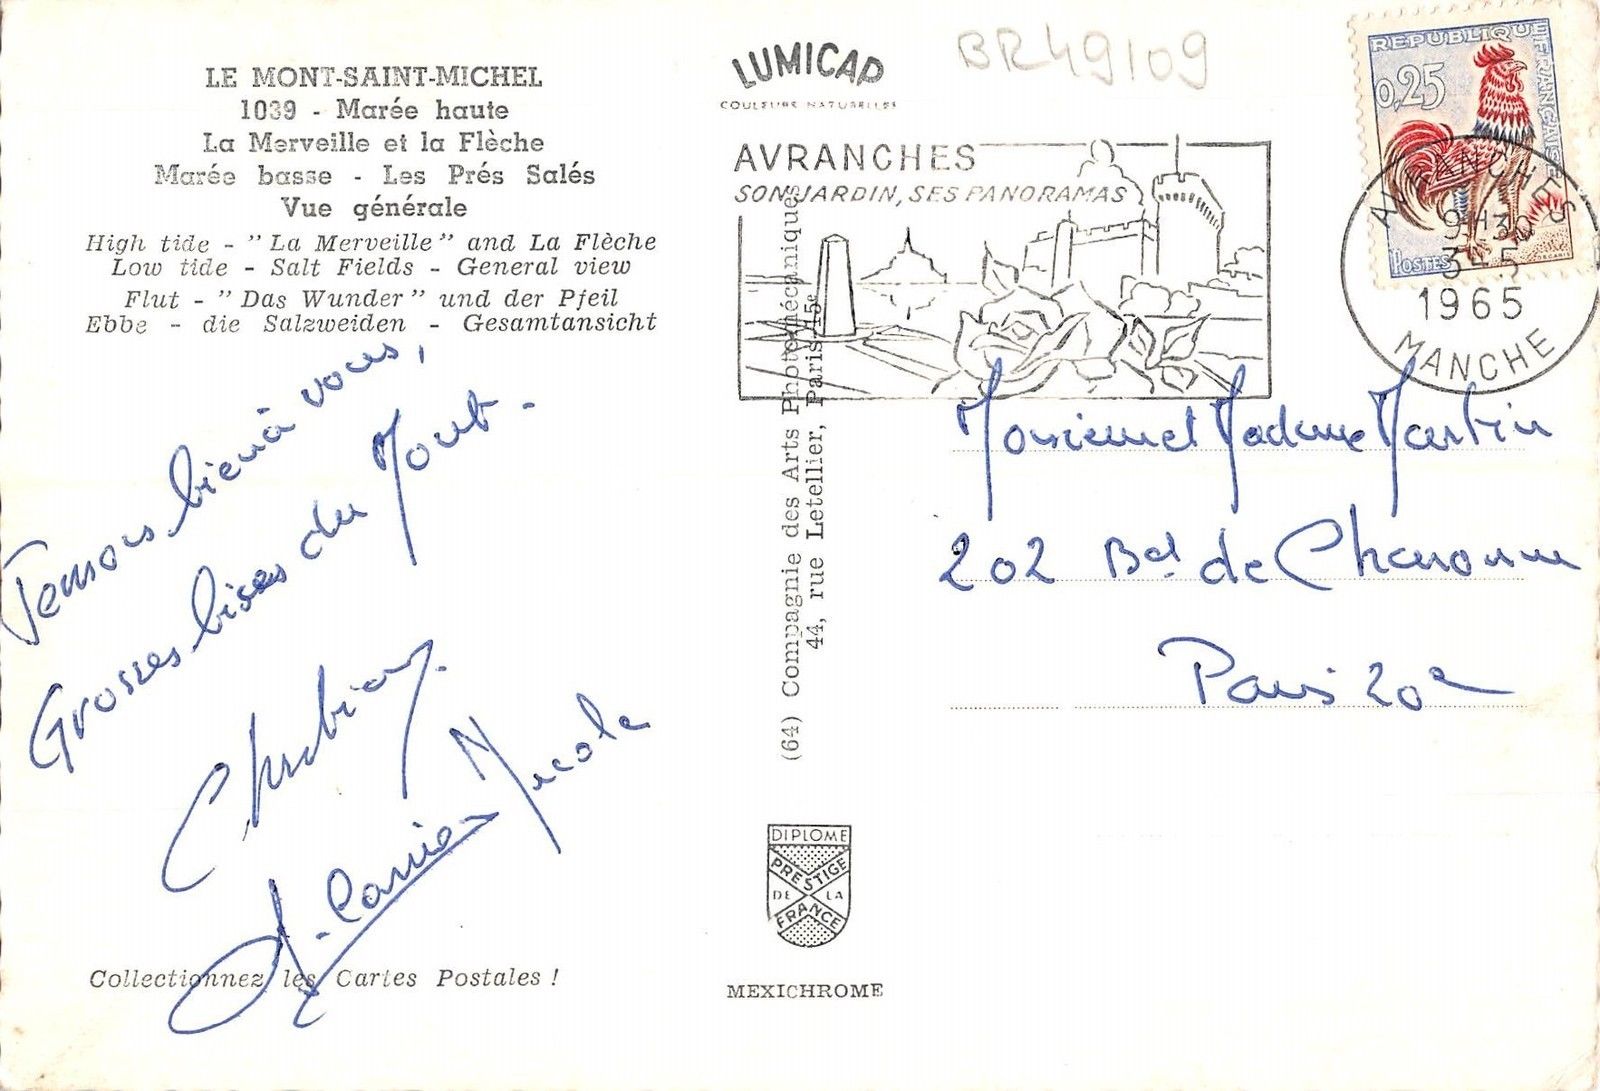 LE MONT-SAINT-MICHEL
1039 - Marée haute
La Merveille et la Flèche
Marée basse - Les Prés Salés
Vue générale
High tide - " La Merveille " and La Flèche
Low tide - Salt Fields - General view
Flut - " Das Wunder " und der Pfeil
Ebbe - die Salzweiden - Gesamtansicht
Pensons bien à vous,
Grosses bises du Mont.
Nicole
Collectionnez les Cartes Postales !
LUMICAP
COULEURS NATURELLES
BR49109
AVRANCHES
SON JARDIN, SES PANORAMAS
(64) Compagnie des Arts Photomécaniques
44, rue Letellier, Paris-15e
DIPLOME
PRESTIGE
DE LA
FRANCE
MEXICHROME
REPUBLIQUE FRANÇAISE
0,25
POSTES
DECARIS
AVRANCHES
9H30
3-5
1965
MANCHE
Monsieur et Madame Martin
202 Bd de Charonne
Paris 20e